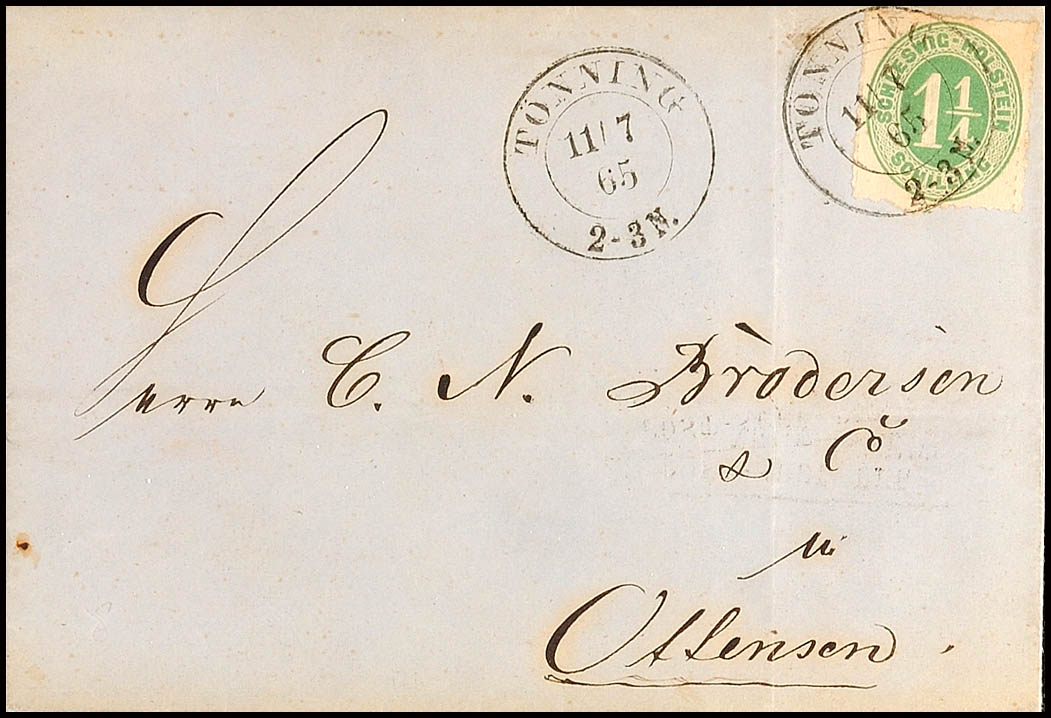 TÖNNING
11/7
65
2-3 N.
TÖNNING
11/7
65
2-3 N.
SCHLESWIG-HOLSTEIN
1 1/4
SCHILLING
Herrn C. N. Brodersen
& Co
in
Ottensen.